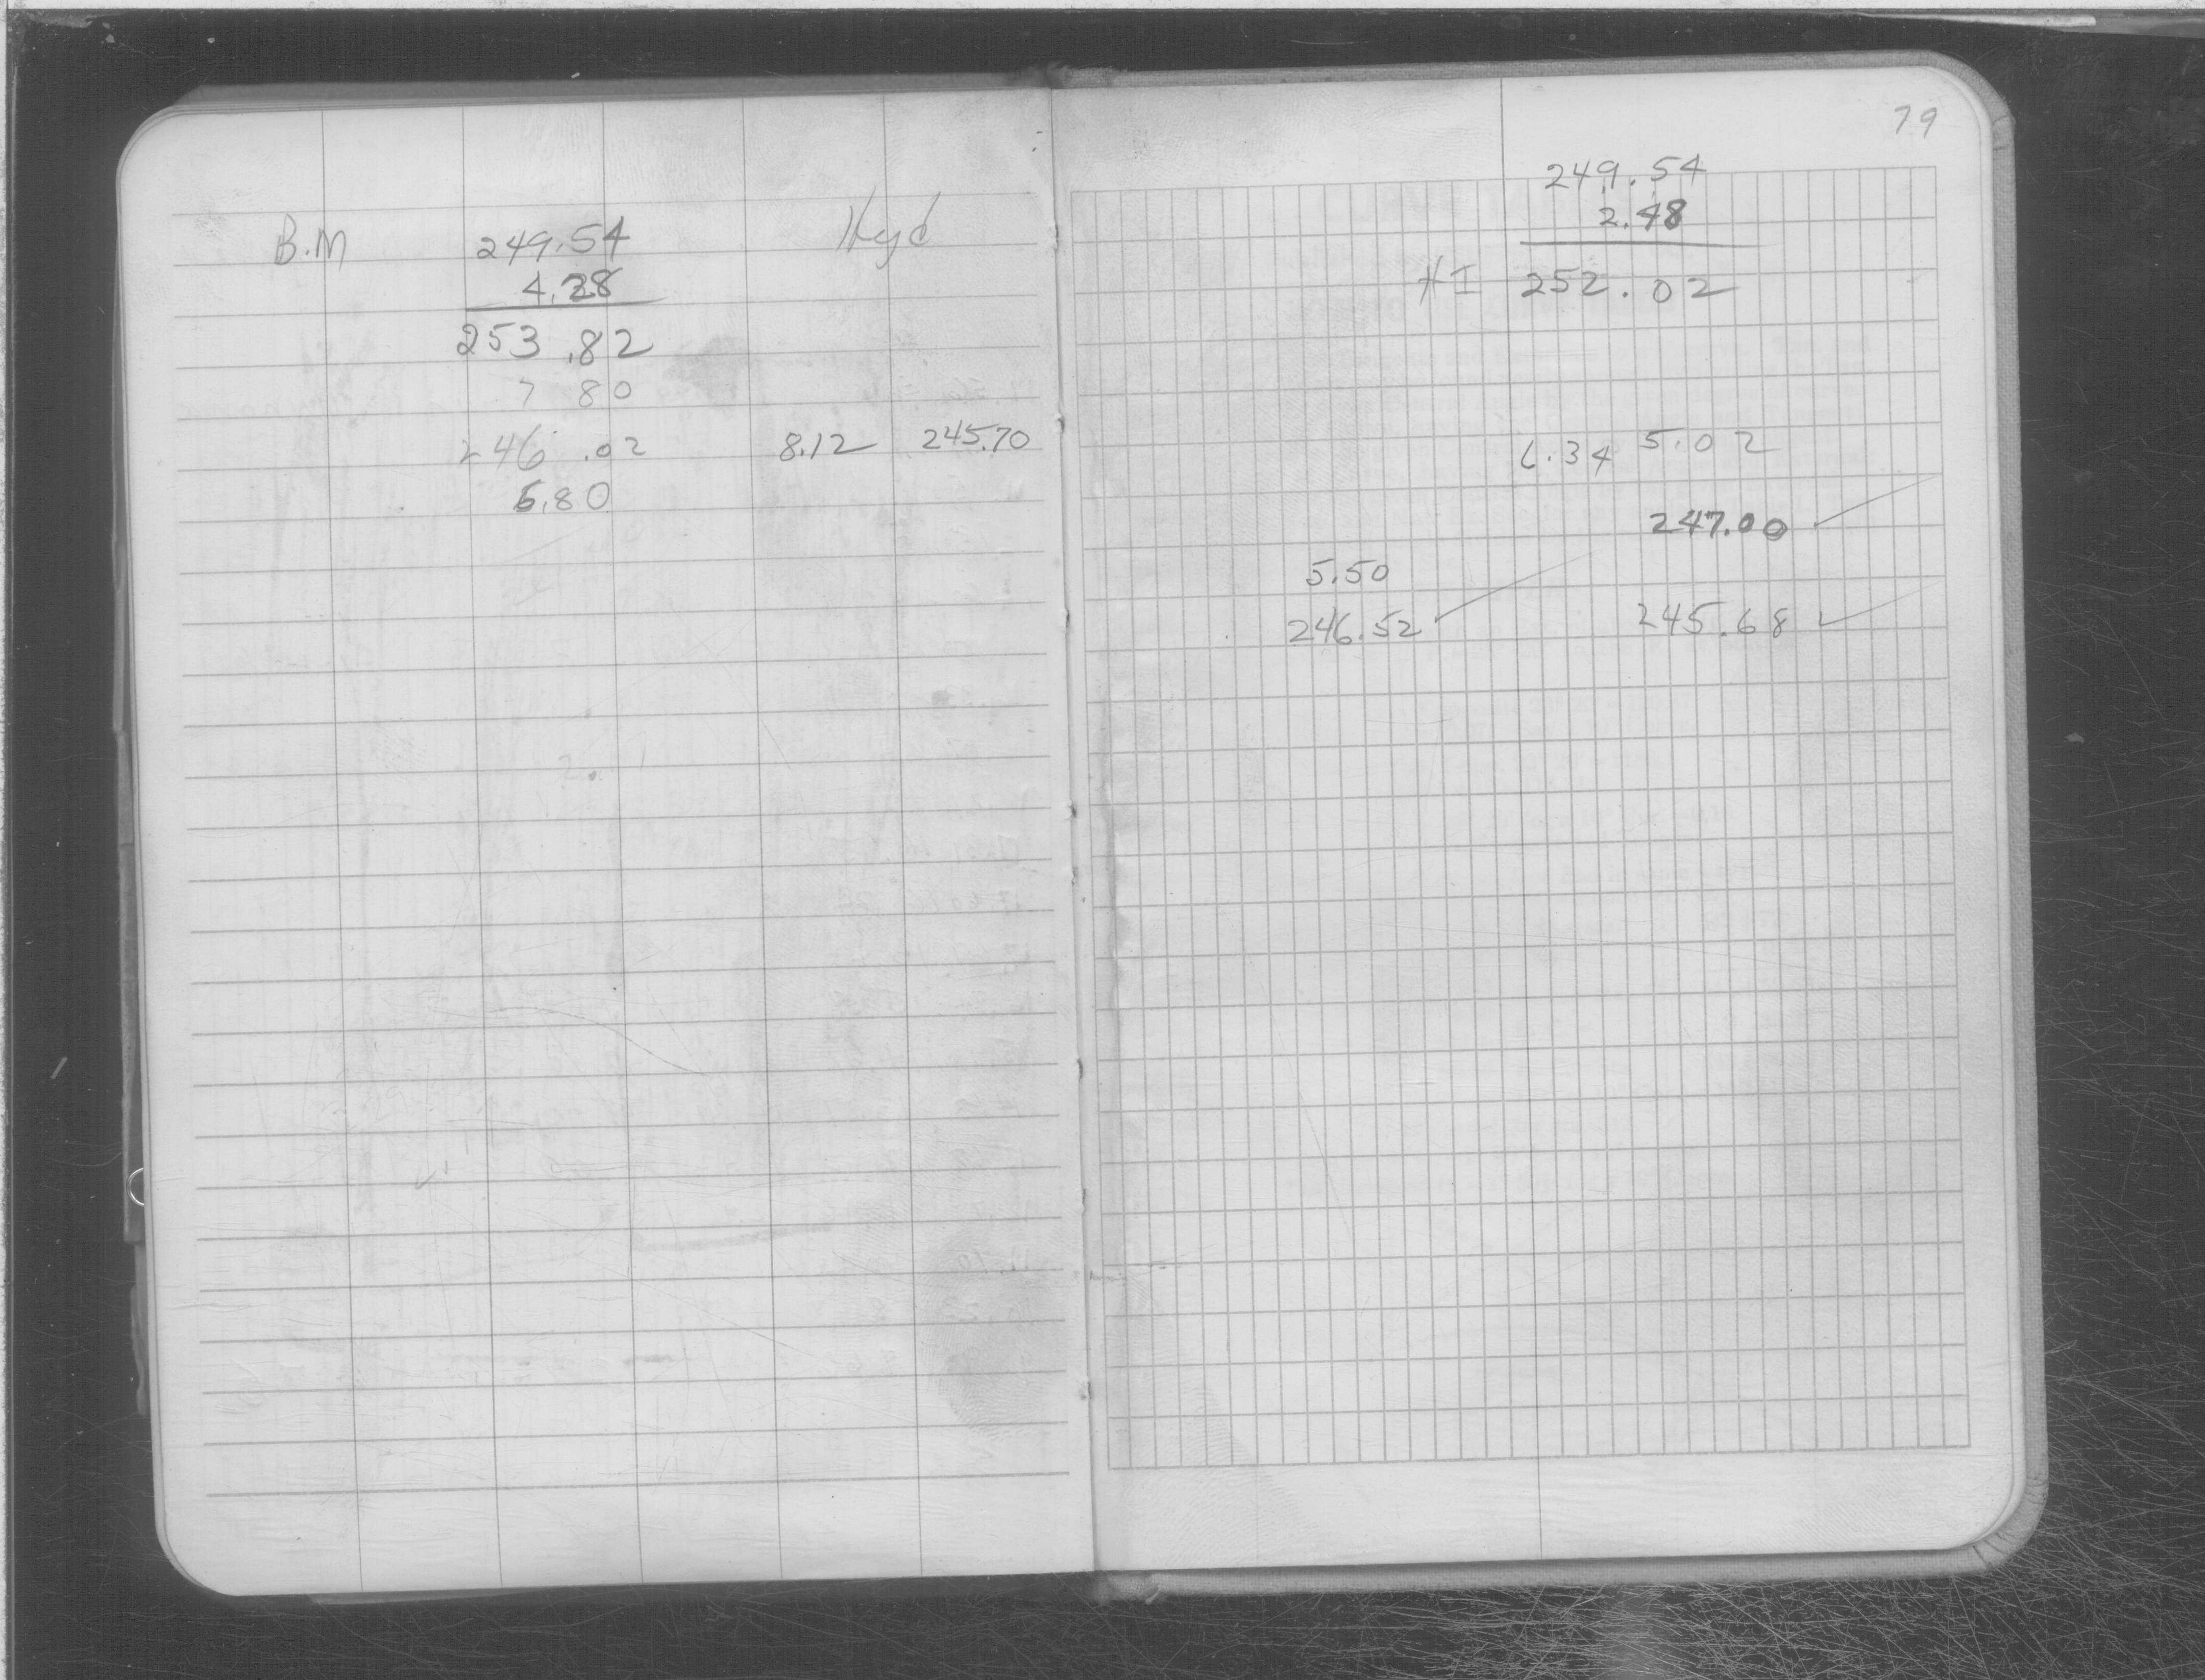 B.M 249.54 Hyd
4.28
253.82
7 80
246.02 8.12 245.70
5.80
79
249.54
2.48
HI 252.02
6.34 5.02
247.00
5.50
246.52 245.68